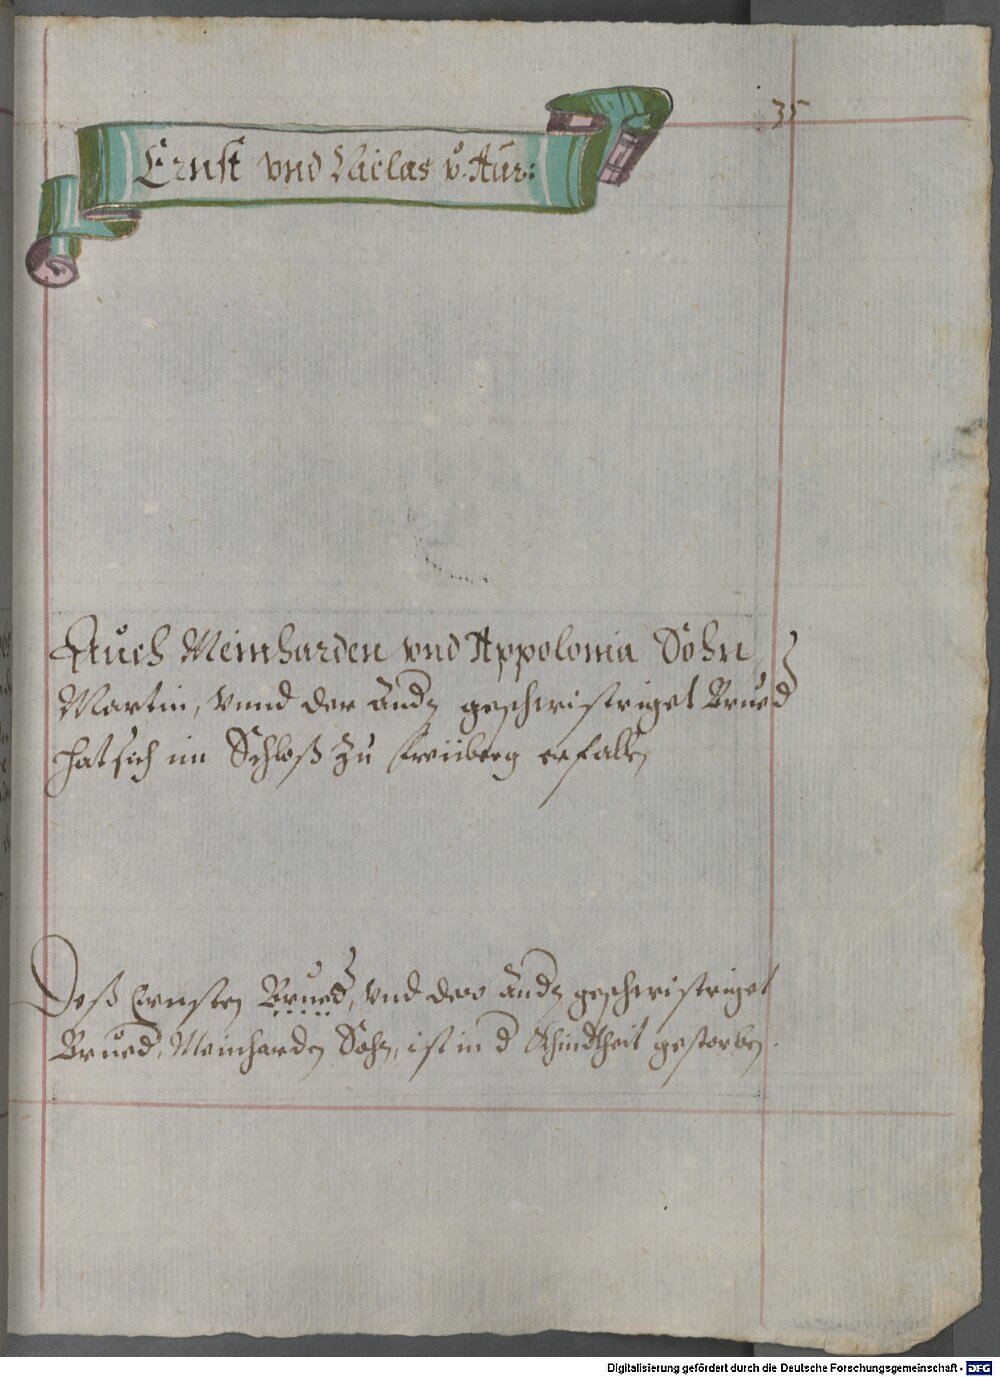 35
Ernst vnd Niclas v. Aur:
Auch Meinharden vnd Appolonia Sohn
Martin, vnnd der andn geschwistriget Brued
hat sich im Schloß zu Freiiberg erfalln
Deß Ernsten Brued, vnd der andn geschwistriget
Brued, Meinharden Sohn, ist in d Khindtheit gestorben.
Digitalisierung gefördert durch die Deutsche Forschungsgemeinschaft - DFG